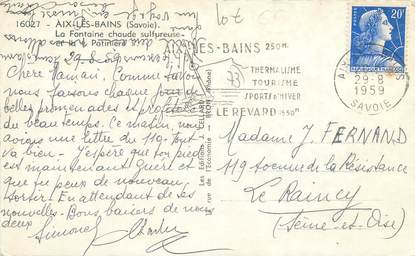 16027 - AIX-LES-BAINS (Savoie).
La Fontaine chaude sulfureuse
et la Patinière
29-8-59
Chère Maman. Comme
nous faisons chaque jour de
belles promenades et profitons
du beau temps. Ce matin, nous
avions une lettre du 119. Tout
va bien. J'espère que ton pied
est maintenant guéri et
que tu peux de nouveau
sortir. En attendant de tes
nouvelles. Bons baisers de nous
deux
Simone
AIX-LES-BAINS 250M.
THERMALISME
TOURISME
SPORTS D'HIVER
LE REVARD 1550M.
20F
29-8
1959
SAVOIE
Madame J. FERNAND
119 Avenue de la Résistance
Le Raincy
(Seine-et-Oise)